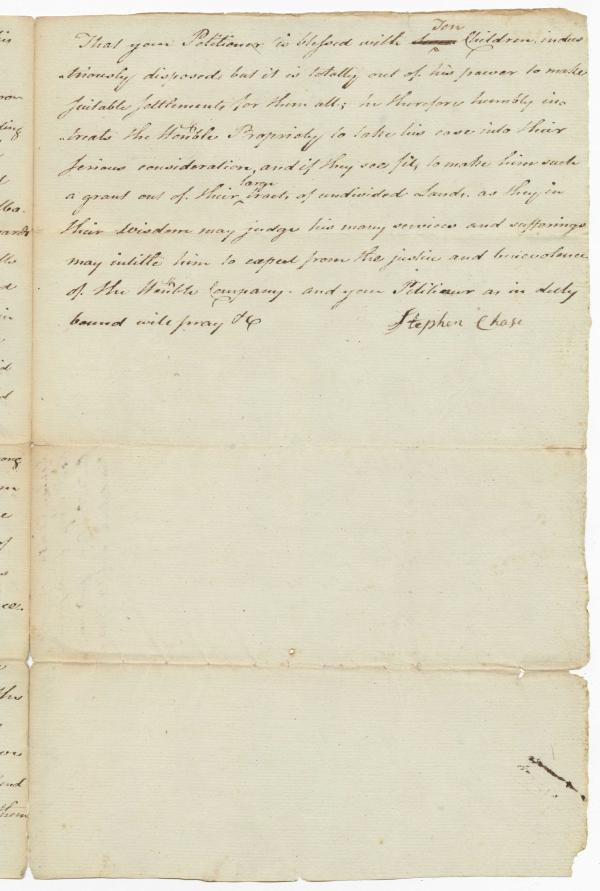 Ten
That your Petitioner is blessed with Children, indus
-triously disposed, but it is totally out of his power to make
suitable settlements for them all; he therefore humbly in=
-treats the Honble Propriety to take his case into their
serious consideration, and if they see fit, to make him such
large
a grant out of their tracts of undivided Lands as they in
their wisdom may judge his many services and sufferings
may intitle him to expect from the justice and benevolence
of the Honble Company. and your Petitioner as in duty
bound will pray &c
Stephen Chase